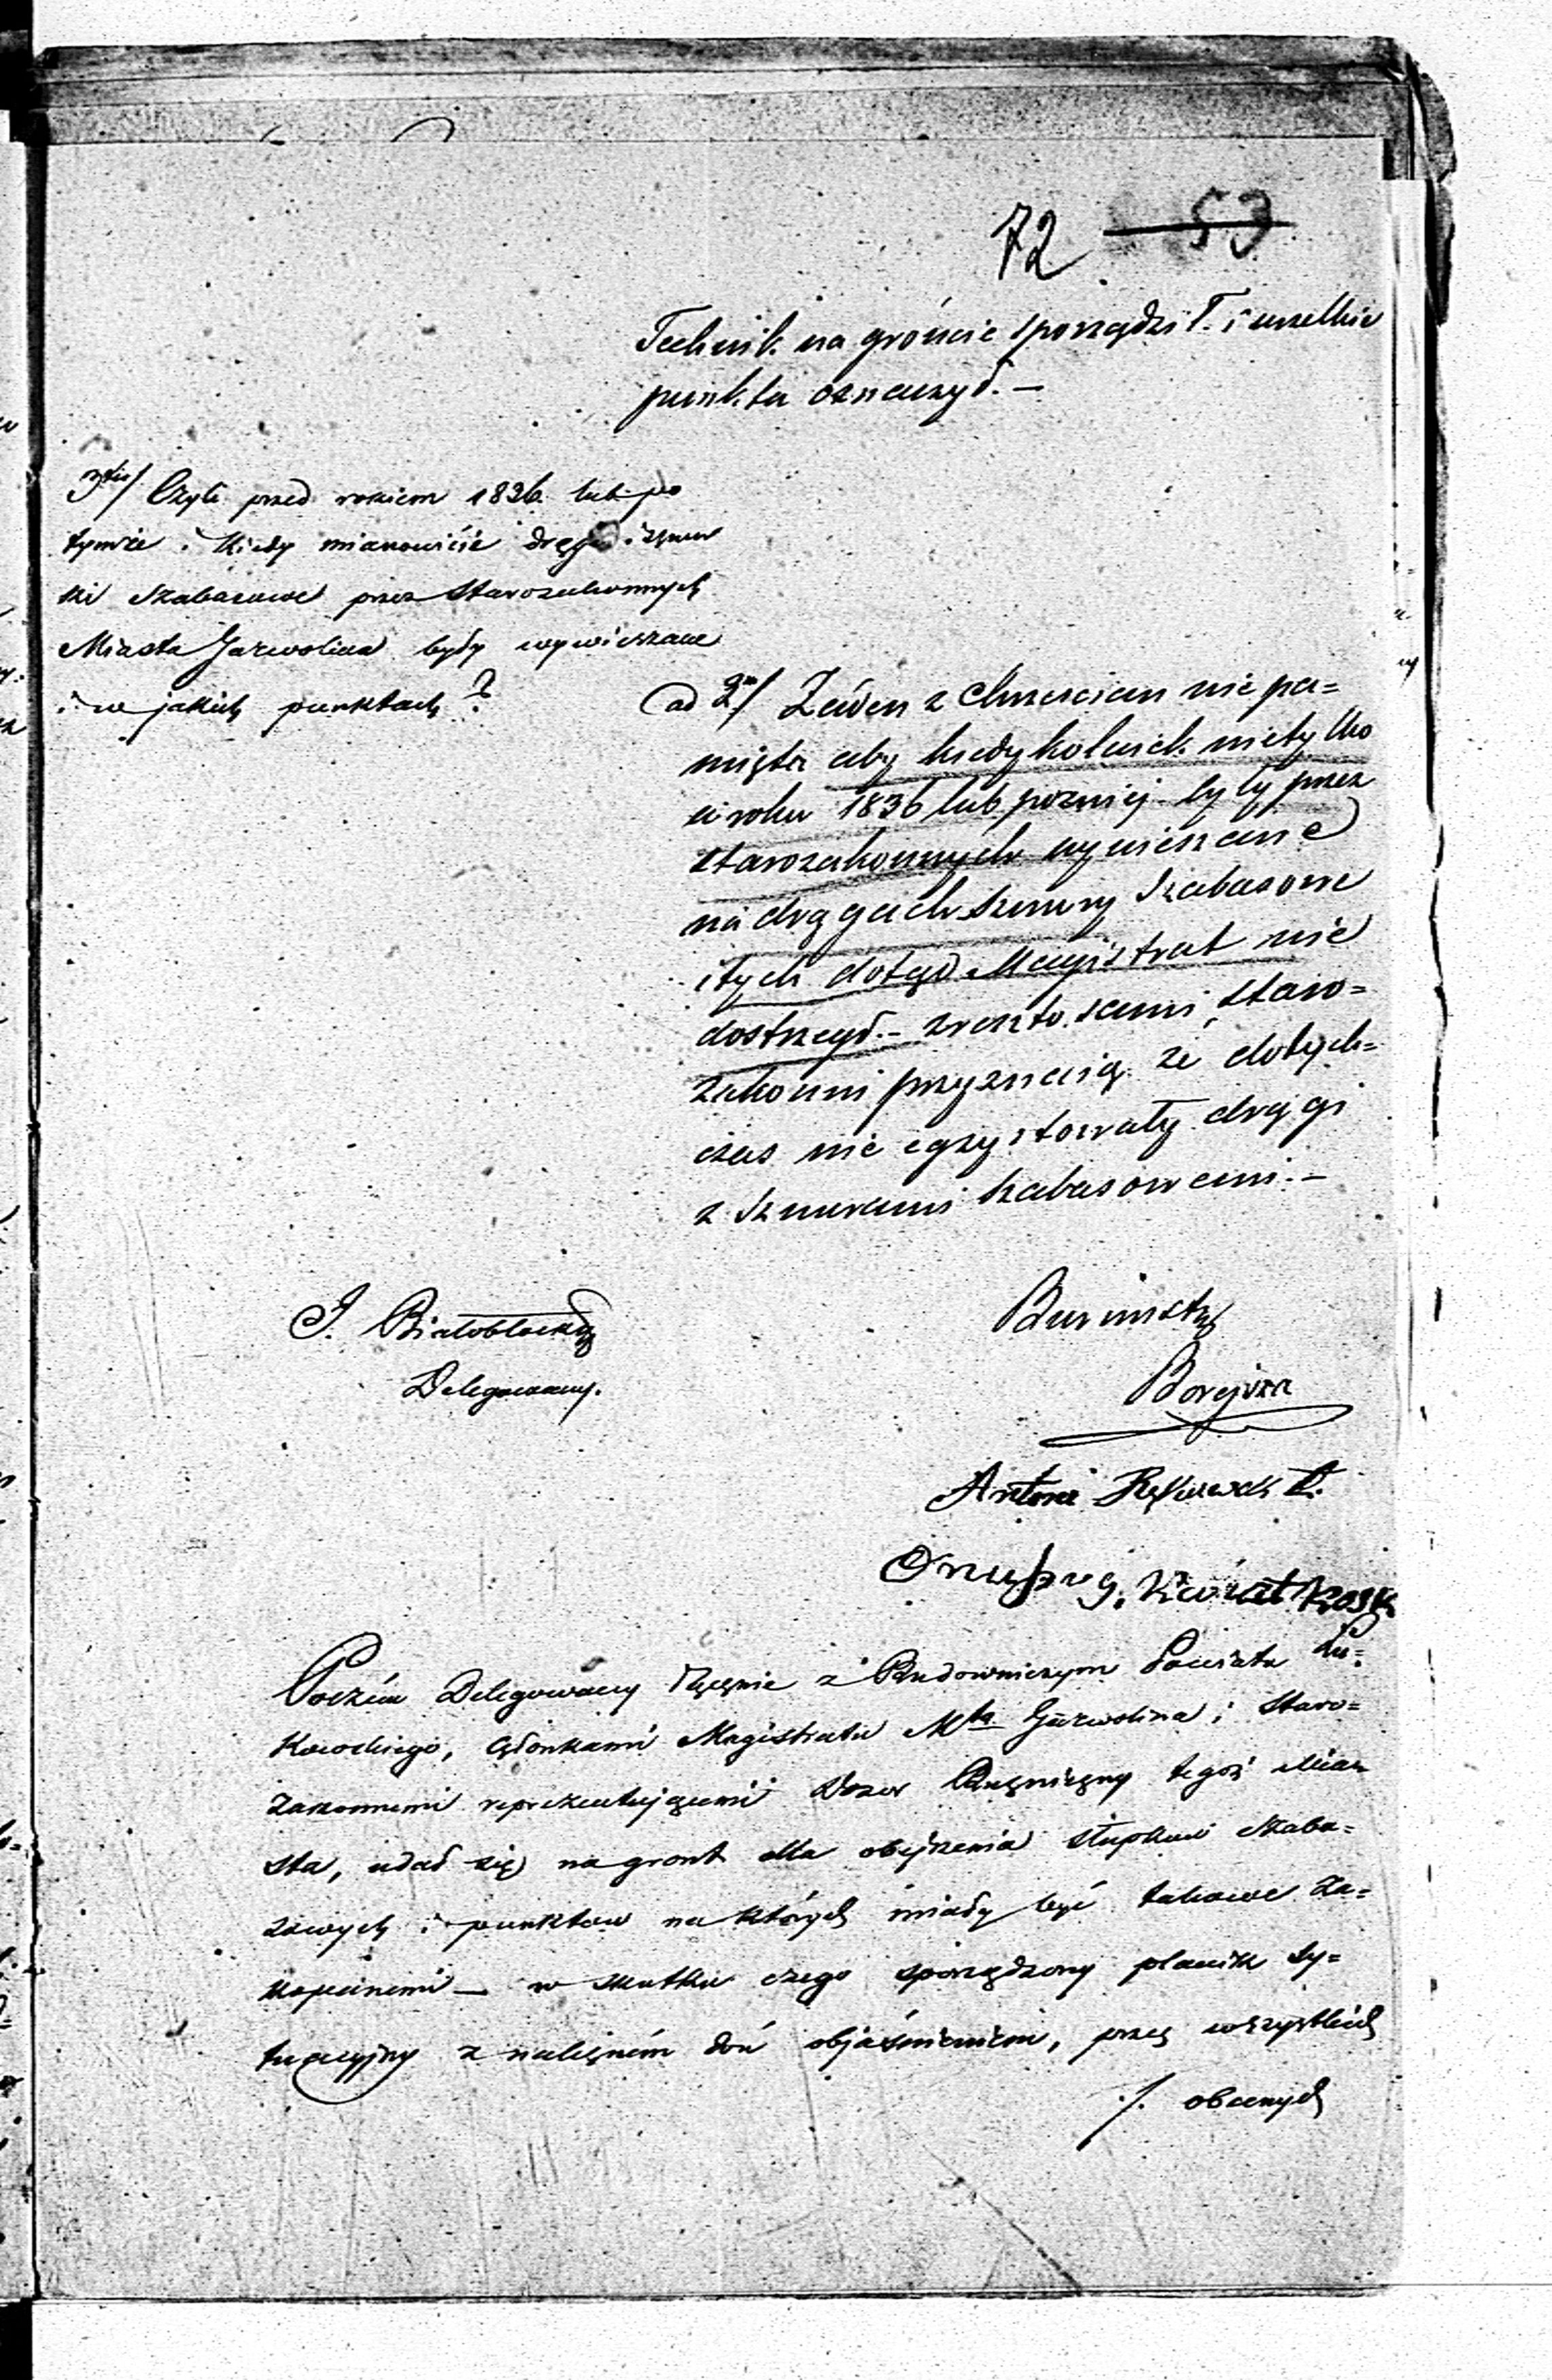 72 53
Technik na gróńcie sporządził i wszelkie
punkta oznaczył. –
3tie/ Czyli przed rokiem 1836 lub po
tymże i kiedy mianowicie drągi i sznur
ki szabasowe przez Starozakonnych
Miasta Garwolina były wywieszane
i w jakich punktach?
ad 3m/ Żaden z Chrzescian nie pa=
mięta aby kiedykolwiek nietylko
w roku 1836 lub pozniej były przez
starozakonnych wywieszane
na drągach sznury szabasowe
i tych dotąd Magistrat nie
dostrzegł. – zreszto sami staro=
zakonni przyznaią że dotych=
czas nie egzystowały drągi
z sznurami szabasowemi. –
J. Białobłocki
Delegowany.
Burmistrz
Borejsza
Antoni
Onufry Kwiatkosk
Poczém Delegowany łącznie z Budowniczym Powiatu Łu=
kowskiego, Członkami Magistratu Mta Garwolina i Staro=
zakonnemi reprezentującemi Dozor Bużniczny tegoż Mia
sta, udał się na gront dla obejrzenia słupków szaba=
sowych i punktow na których miały być takowe za=
kopanemi – w skutku czego sporządzony planik sy=
tuacyjny z należném doń objaśnieniem, przez wszystkich
./. obecnych